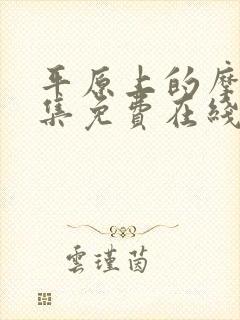 平原上的摩
集免费在线
雲瑾茵